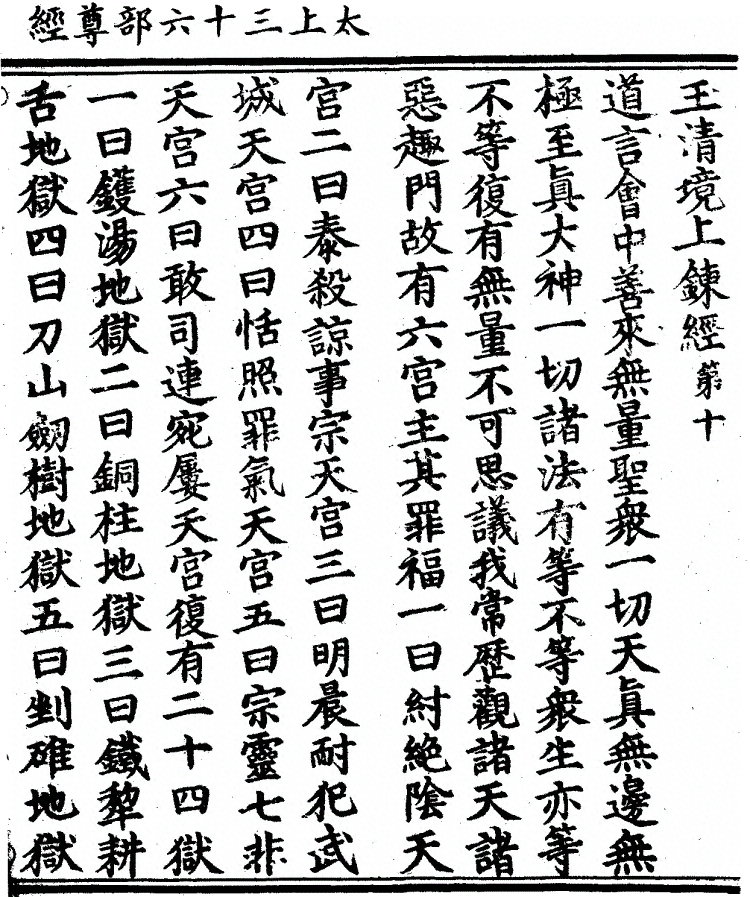 太上三十六部尊經
玉清境上鍊經第十
道言會中善來無量聖衆一切天眞無邊無
極至眞大神一切諸法有等不等衆生亦等
不等復有無量不可思議我常歷觀諸天諸
惡趣門故有六宮主其罪福一曰紂絕陰天
宮二曰泰殺諒事宗天宮三曰明晨耐犯武
城天宮四曰恬照罪氣天宮五曰宗靈七非
天宮六曰敢司連宛屢天宮復有二十四獄
一曰鑊湯地獄二曰銅柱地獄三曰鐵犂耕
舌地獄四曰刀山劒樹地獄五曰剉碓地獄